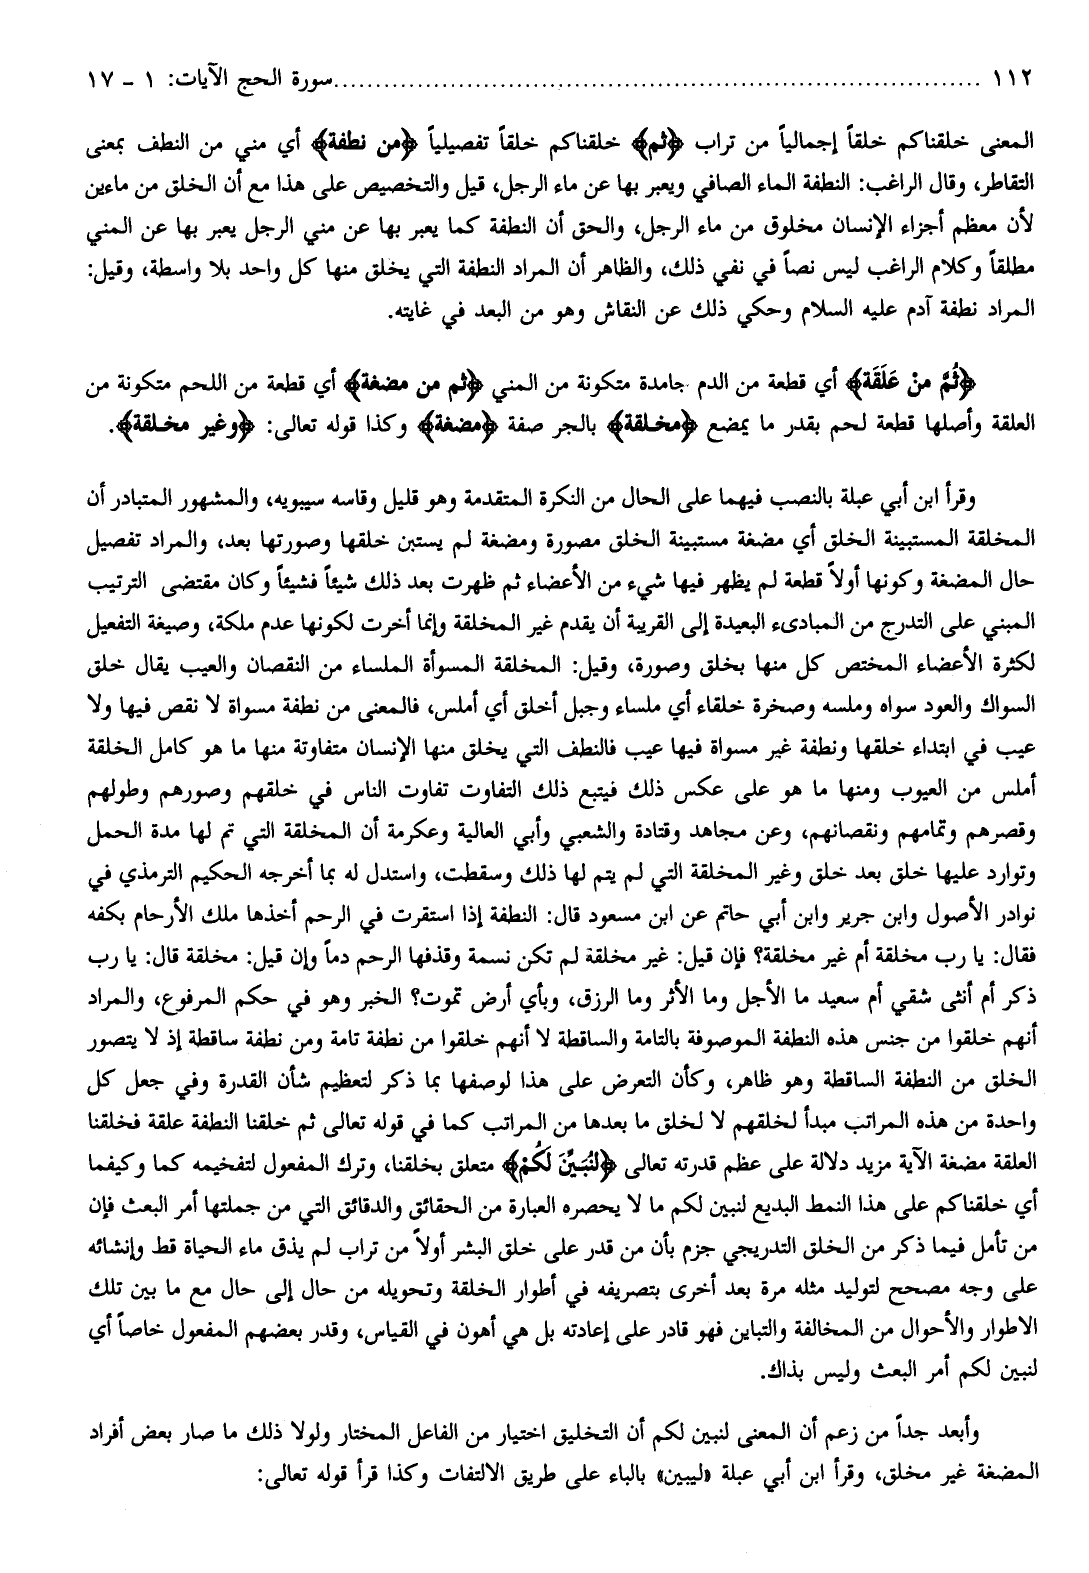 ١١٢ ........................................................................... سورة الحج الآيات: ١ - ١٧
المعنى خلقناكم خلقاً إجمالياً من تراب ﴿ثم﴾ خلقناكم خلقاً تفصيلياً ﴿من نطفة﴾ أي مني من النطف بمعنى
التقاطر، وقال الراغب: النطفة الماء الصافي ويعبر بها عن ماء الرجل، قيل والتخصيص على هذا مع أن الخلق من ماءين
لأن معظم أجزاء الإنسان مخلوق من ماء الرجل، والحق أن النطفة كما يعبر بها عن مني الرجل يعبر بها عن المني
مطلقاً وكلام الراغب ليس نصاً في نفي ذلك، والظاهر أن المراد النطفة التي يخلق منها كل واحد بلا واسطة، وقيل:
المراد نطفة آدم عليه السلام وحكي ذلك عن النقاش وهو من البعد في غايته.
﴿ثُمَّ مِنْ عَلَقَة﴾ أي قطعة من الدم جامدة متكونة من المني ﴿ثم من مضغة﴾ أي قطعة من اللحم متكونة من
العلقة وأصلها قطعة لحم بقدر ما يمضغ ﴿مخلقة﴾ بالجر صفة ﴿مضغة﴾ وكذا قوله تعالى: ﴿وغير مخلقة﴾.
وقرأ ابن أبي عبلة بالنصب فيهما على الحال من النكرة المتقدمة وهو قليل وقاسه سيبويه، والمشهور المتبادر أن
المخلقة المستبينة الخلق أي مضغة مستبينة الخلق مصورة ومضغة لم يستبن خلقها وصورتها بعد، والمراد تفصيل
حال المضغة وكونها أولاً قطعة لم يظهر فيها شيء من الأعضاء ثم ظهرت بعد ذلك شيئاً فشيئاً وكان مقتضى الترتيب
المبني على التدرج من المبادىء البعيدة إلى القريبة أن يقدم غير المخلقة وإنما أخرت لكونها عدم ملكة، وصيغة التفعيل
لكثرة الأعضاء المختص كل منها بخلق وصورة، وقيل: المخلقة المسوأة الملساء من النقصان والعيب يقال خلق
السواك والعود سواه وملسه وصخرة خلقاء أي ملساء وجبل أخلق أي أملس، فالمعنى من نطفة مسواة لا نقص فيها ولا
عيب في ابتداء خلقها ونطفة غير مسواة فيها عيب فالنطف التي يخلق منها الإنسان متفاوتة منها ما هو كامل الخلقة
أملس من العيوب ومنها ما هو على عكس ذلك فيتبع ذلك التفاوت تفاوت الناس في خلقهم وصورهم وطولهم
وقصرهم وتمامهم ونقصانهم، وعن مجاهد وقتادة والشعبي وأبي العالية وعكرمة أن المخلقة التي تم لها مدة الحمل
وتوارد عليها خلق بعد خلق وغير المخلقة التي لم يتم لها ذلك وسقطت، واستدل له بما أخرجه الحكيم الترمذي في
نوادر الأصول وابن جرير وابن أبي حاتم عن ابن مسعود قال: النطفة إذا استقرت في الرحم أخذها ملك الأرحام بكفه
فقال: يا رب مخلقة أم غير مخلقة؟ فإن قيل: غير مخلقة لم تكن نسمة وقذفها الرحم دماً وإن قيل: مخلقة قال: يا رب
ذكر أم أنثى شقي أم سعيد ما الأجل وما الأثر وما الرزق، وبأي أرض تموت؟ الخبر وهو في حكم المرفوع، والمراد
أنهم خلقوا من جنس هذه النطفة الموصوفة بالتامة والساقطة لا أنهم خلقوا من نطفة تامة ومن نطفة ساقطة إذ لا يتصور
الخلق من النطفة الساقطة وهو ظاهر، وكأن التعرض على هذا لوصفها بما ذكر لتعظيم شأن القدرة وفي جعل كل
واحدة من هذه المراتب مبدأ لخلقهم لا لخلق ما بعدها من المراتب كما في قوله تعالى ثم خلقنا النطفة علقة فخلقنا
العلقة مضغة الآية مزيد دلالة على عظم قدرته تعالى ﴿لنُبَيِّنَ لَكُمْ﴾ متعلق بخلقنا، وترك المفعول لتفخيمه كما وكيفما
أي خلقناكم على هذا النمط البديع لنبين لكم ما لا يحصره العبارة من الحقائق والدقائق التي من جملتها أمر البعث فإن
من تأمل فيما ذكر من الخلق التدريجي جزم بأن من قدر على خلق البشر أولاً من تراب لم يذق ماء الحياة قط وإنشائه
على وجه مصحح لتوليد مثله مرة بعد أخرى بتصريفه في أطوار الخلقة وتحويله من حال إلى حال مع ما بين تلك
الاطوار والأحوال من المخالفة والتباين فهو قادر على إعادته بل هي أهون في القياس، وقدر بعضهم المفعول خاصاً أي
لنبين لكم أمر البعث وليس بذاك.
وأبعد جداً من زعم أن المعنى لنبين لكم أن التخليق اختيار من الفاعل المختار ولولا ذلك ما صار بعض أفراد
المضغة غير مخلق، وقرأ ابن أبي عبلة «ليبين» بالياء على طريق الالتفات وكذا قرأ قوله تعالى: